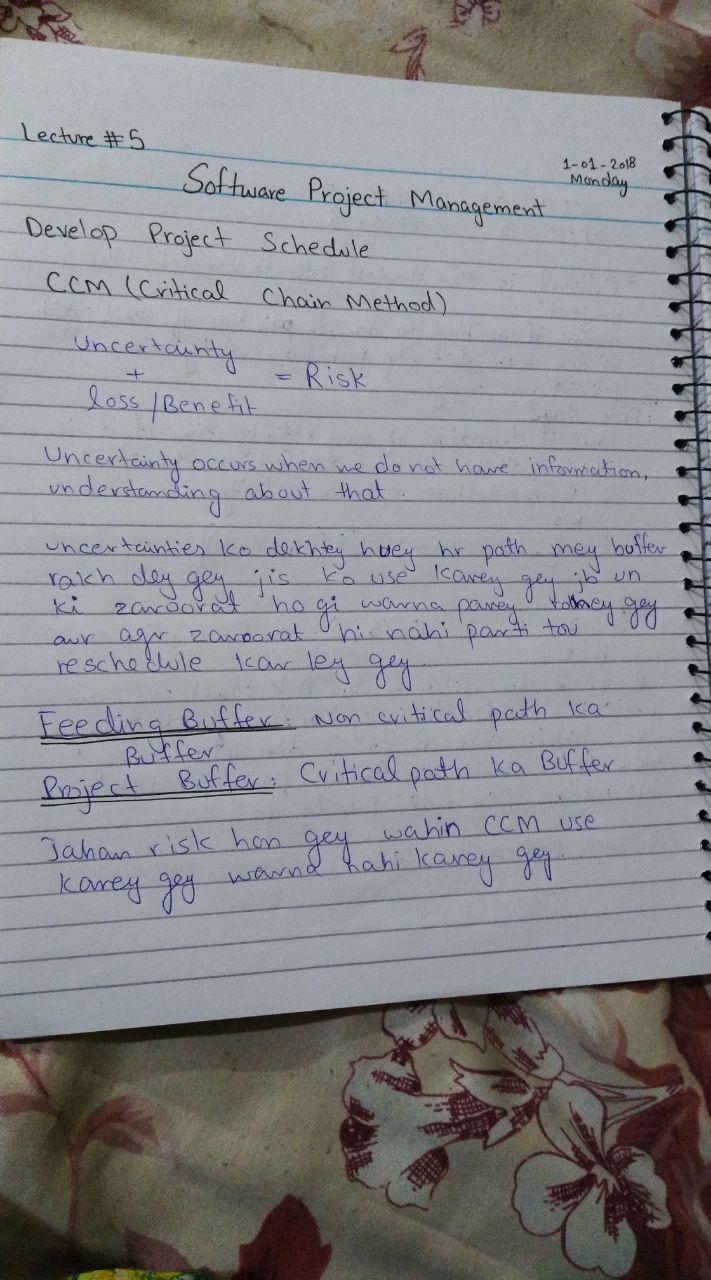 Lecture #5
1-01-2018
Monday
Software Project Management
Develop Project Schedule
CCM (Critical Chain Method)
Uncertainty
+
loss/Benefit
= Risk
Uncertainty occurs when we do not have information,
understanding about that.
uncertainties ko dekhtey huey hr path mey buffer
rakh dey gey jis ko use karey gey jb un
ki zaroorat ho gi warna parey gey
aur agr zaroorat hi nahi parti tou
reschedule kar ley gey
Feeding Buffer: Non critical path ka
Buffer
Project Buffer: Critical path ka Buffer
Jahan risk hon gey wahin CCM use
karey gey warna nahi karey gey.